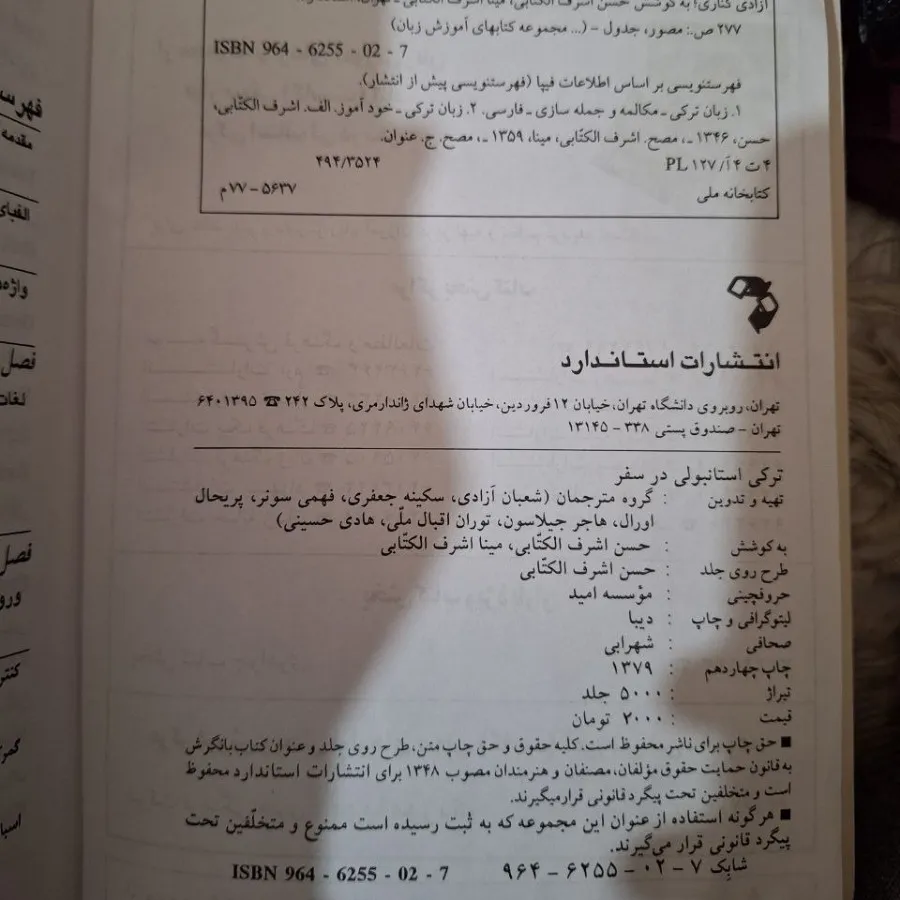 آزادی کناری؛ به کوشش حسن اشرف الکتّابی، مینا اشرف الکتّابی
۲۷۷ ص.: مصور، جدول - (... مجموعه کتابهای آموزش زبان)
ISBN 964 - 6255 - 02 - 7
فهرستنویسی بر اساس اطلاعات فیپا (فهرستنویسی پیش از انتشار).
۱. زبان ترکی ـ مکالمه و جمله سازی ـ فارسی. ۲. زبان ترکی ـ خود آموز. الف. اشرف الکتّابی،
حسن، ۱۳۴۶ ـ، مصحح. اشرف الکتّابی، مینا، ۱۳۵۹ ـ، مصحح. ج. عنوان.
۴ ت ۴ آ/ ۱۲۷ PL ۴۹۴/۳۵۲۴
کتابخانه ملی ۵۶۳۷-۷۷م
انتشارات استاندارد
تهران، روبروی دانشگاه تهران، خیابان ۱۲ فروردین، خیابان شهدای ژاندارمری، پلاک ۲۴۲ ☎ ۶۴۰۱۳۹۵
تهران - صندوق پستی ۳۳۸ - ۱۳۱۴۵
ترکی استانبولی در سفر
تهیه و تدوین : گروه مترجمان (شعبان آزادی، سکینه جعفری، فهمی سونر، پریحال
اورال، هاجر جیلاسون، توران اقبال ملّی، هادی حسینی)
به کوشش : حسن اشرف الکتّابی، مینا اشرف الکتّابی
طرح روی جلد : حسن اشرف الکتّابی
حروفچینی : مؤسسه امید
لیتوگرافی و چاپ : دیبا
صحافی : شهرابی
چاپ چهاردهم : ۱۳۷۹
تیراژ : ۵۰۰۰ جلد
قیمت : ۲۰۰۰ تومان
■ حق چاپ برای ناشر محفوظ است. کلیه حقوق و حق چاپ متن، طرح روی جلد و عنوان کتاب بانگرش
به قانون حمایت حقوق مؤلفان، مصنفان و هنرمندان مصوب ۱۳۴۸ برای انتشارات استاندارد محفوظ
است و متخلفین تحت پیگرد قانونی قرار میگیرند.
■ هرگونه استفاده از عنوان این مجموعه که به ثبت رسیده است ممنوع و متخلّفین تحت
پیگرد قانونی قرار می‌گیرند.
شابک ۷ - ۰۲ - ۶۲۵۵ - ۹۶۴ ISBN 964 - 6255 - 02 - 7
مقدمه
فصل
لغات
فصل